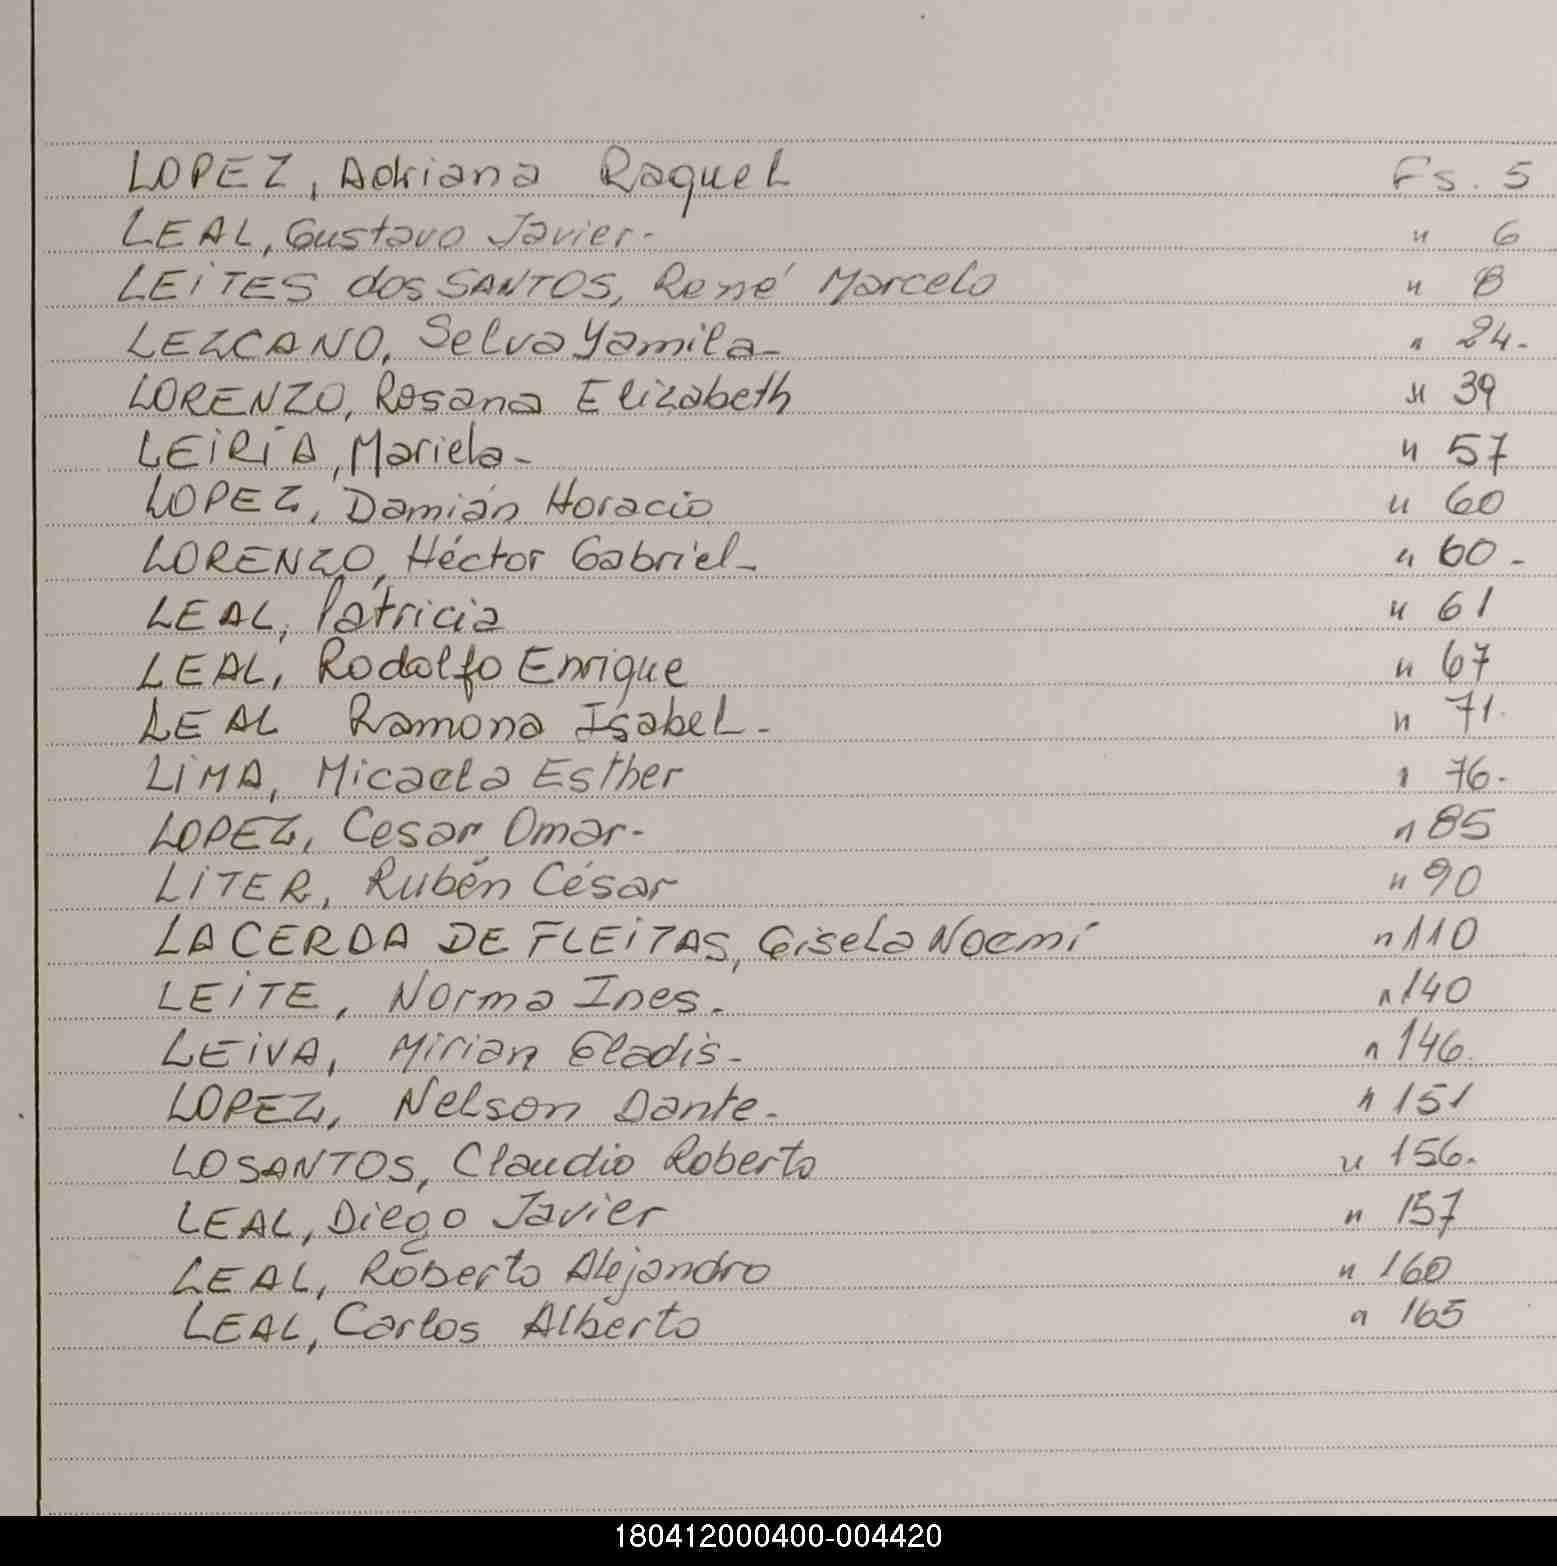 LOPEZ, Adriana Raquel Fs. 5
LEAL, Gustavo Javier- " 6
LEITES dos SANTOS, René Marcelo " 8
LEZCANO, Selva Yamila- " 24.
LORENZO, Rosana Elizabeth " 39
LEIRIA, Mariela- " 57
LOPEZ, Damián Horacio " 60
LORENZO, Héctor Gabriel- " 60-
LEAL, Patricia " 61
LEAL, Rodolfo Enrique " 67
LEAL Ramona Isabel- " 71.
LIMA, Micaela Esther " 76.
LOPEZ, Cesar Omar- " 85
LITER, Rubén César " 90
LACERDA DE FLEITAS, Gisela Noemí " 110
LEITE, Norma Ines. " 140
LEIVA, Mirian Gladis- " 146.
LOPEZ, Nelson Dante- " 151
LOSANTOS, Claudio Roberto " 156.
LEAL, Diego Javier " 157
LEAL, Roberto Alejandro " 160
LEAL, Carlos Alberto " 165
180412000400-004420